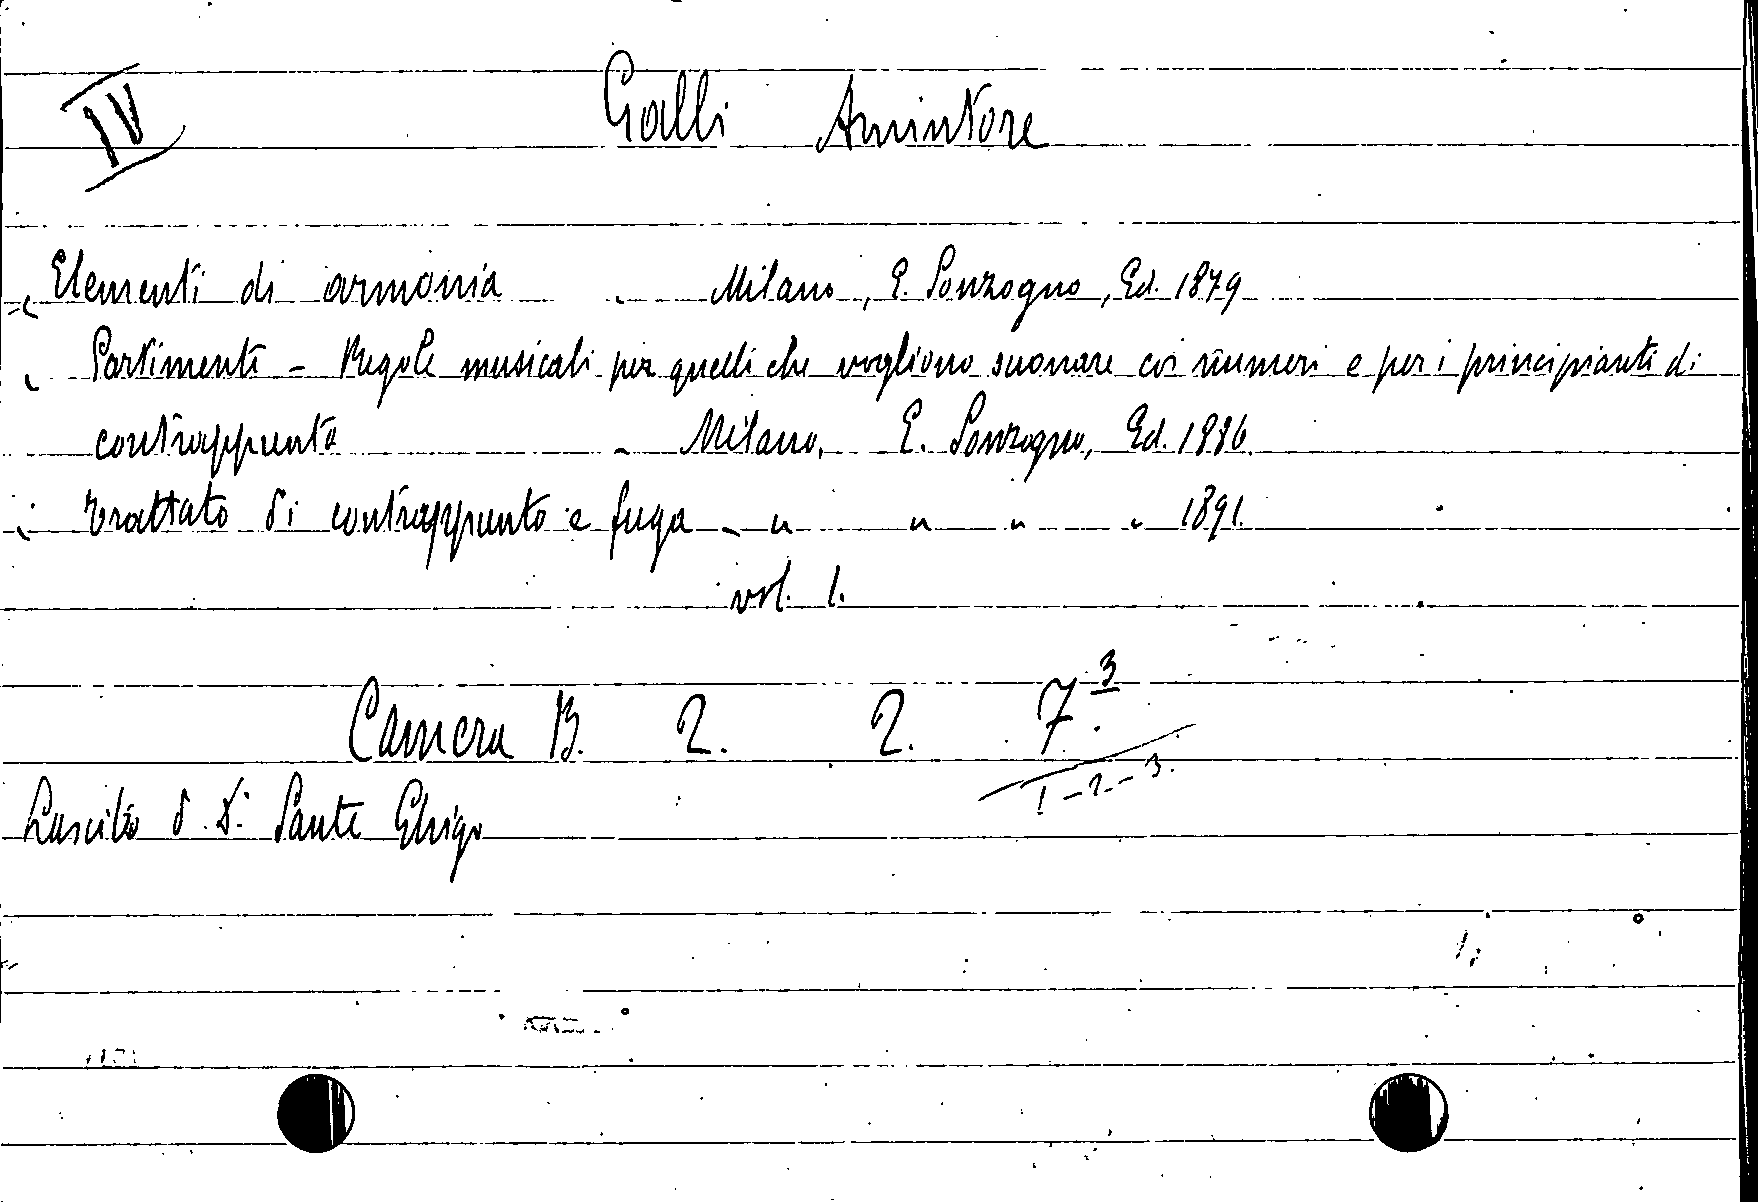 IV
Galli Amintore
Elementi di armonia - Milano, E. Sonzogno, Ed. 1879
Partimenti - Regole musicali per quelli che vogliono suonare coi numeri e per i principianti di
contrappunto - Milano, E. Sonzogno, Ed. 1886.
Trattato di contrappunto e fuga - " " " " 1891.
vol. 1.
Camera B. 2. 2. 7.3
1-2-3.
Lascito Sante